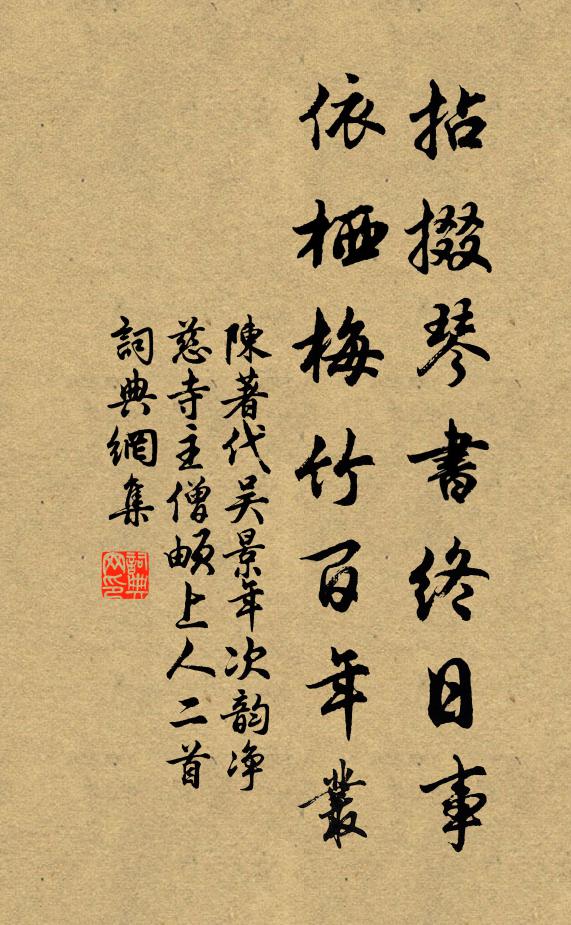 拈掇琴書終日事
依栖梅竹百年叢
陳著代吴景年次韵净
慈寺主僧頔上人二首
詞典網集
詞典网印